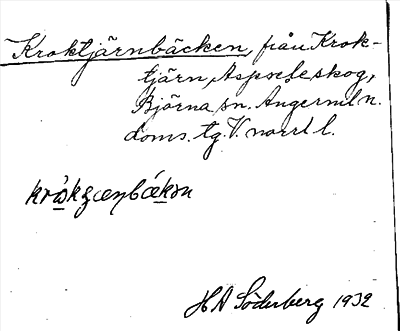 Kroktjärnbäcken, från Krok-
tjärn, Aspsele skog,
Björna sn. Ångerml n.
doms. tg. V. norrl l.
HA Söderberg 1932